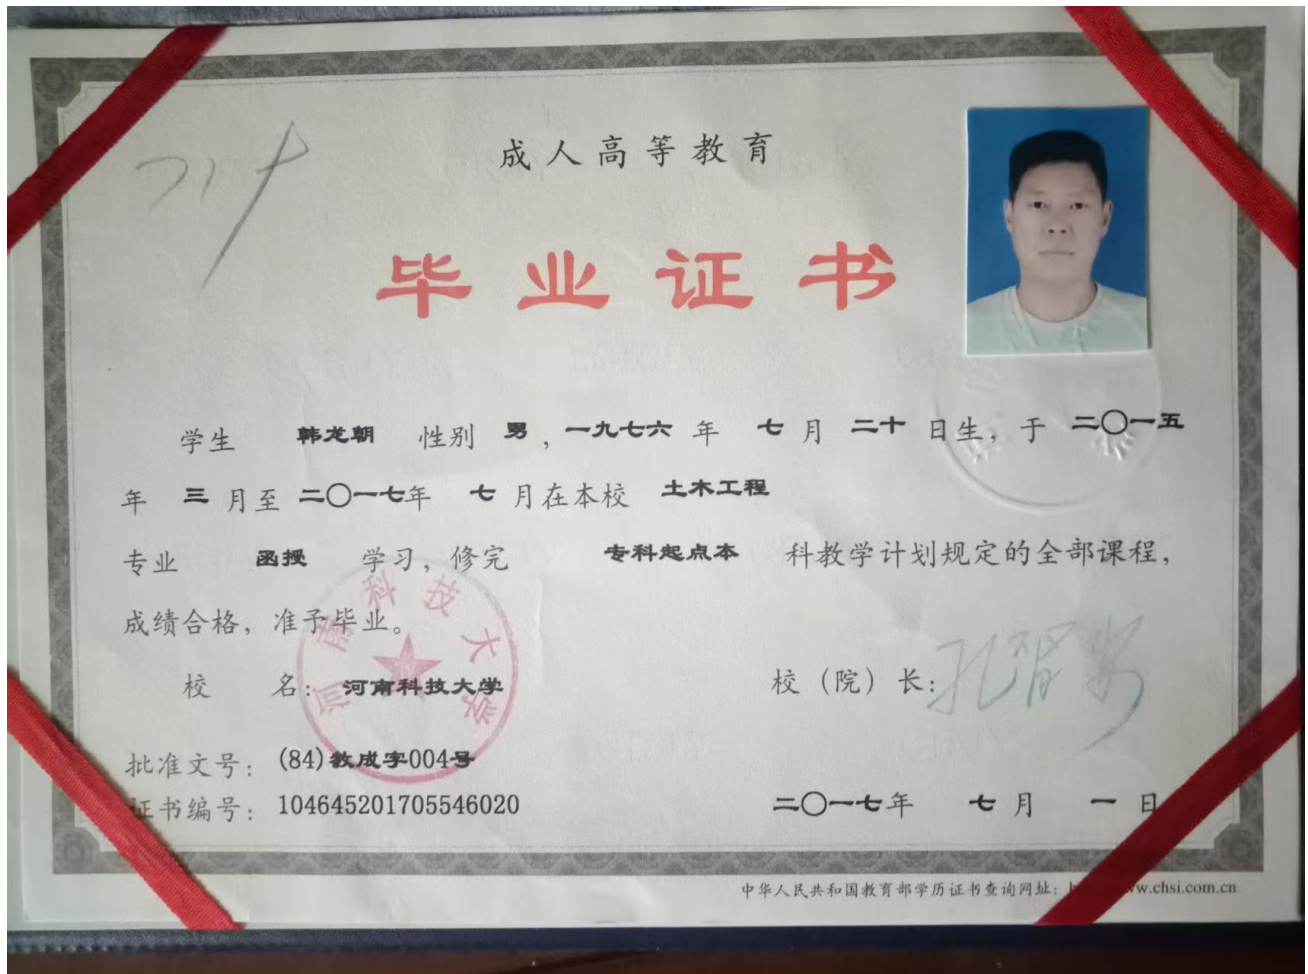 成人高等教育
毕业证书
学生 韩龙朝 性别 男,一九七六年 七月 二十日生,于 二〇一五
年 三月至 二〇一七年 七月在本校 土木工程
专业 函授 学习,修完 专科起点本 科教学计划规定的全部课程,
成绩合格,准予毕业。
校 名:河南科技大学 校(院)长:
河南科技大学
批准文号:(84)教成字004号
证书编号:104645201705546020 二〇一七年 七月 一日
中华人民共和国教育部学历证书查询网址:www.chsi.com.cn